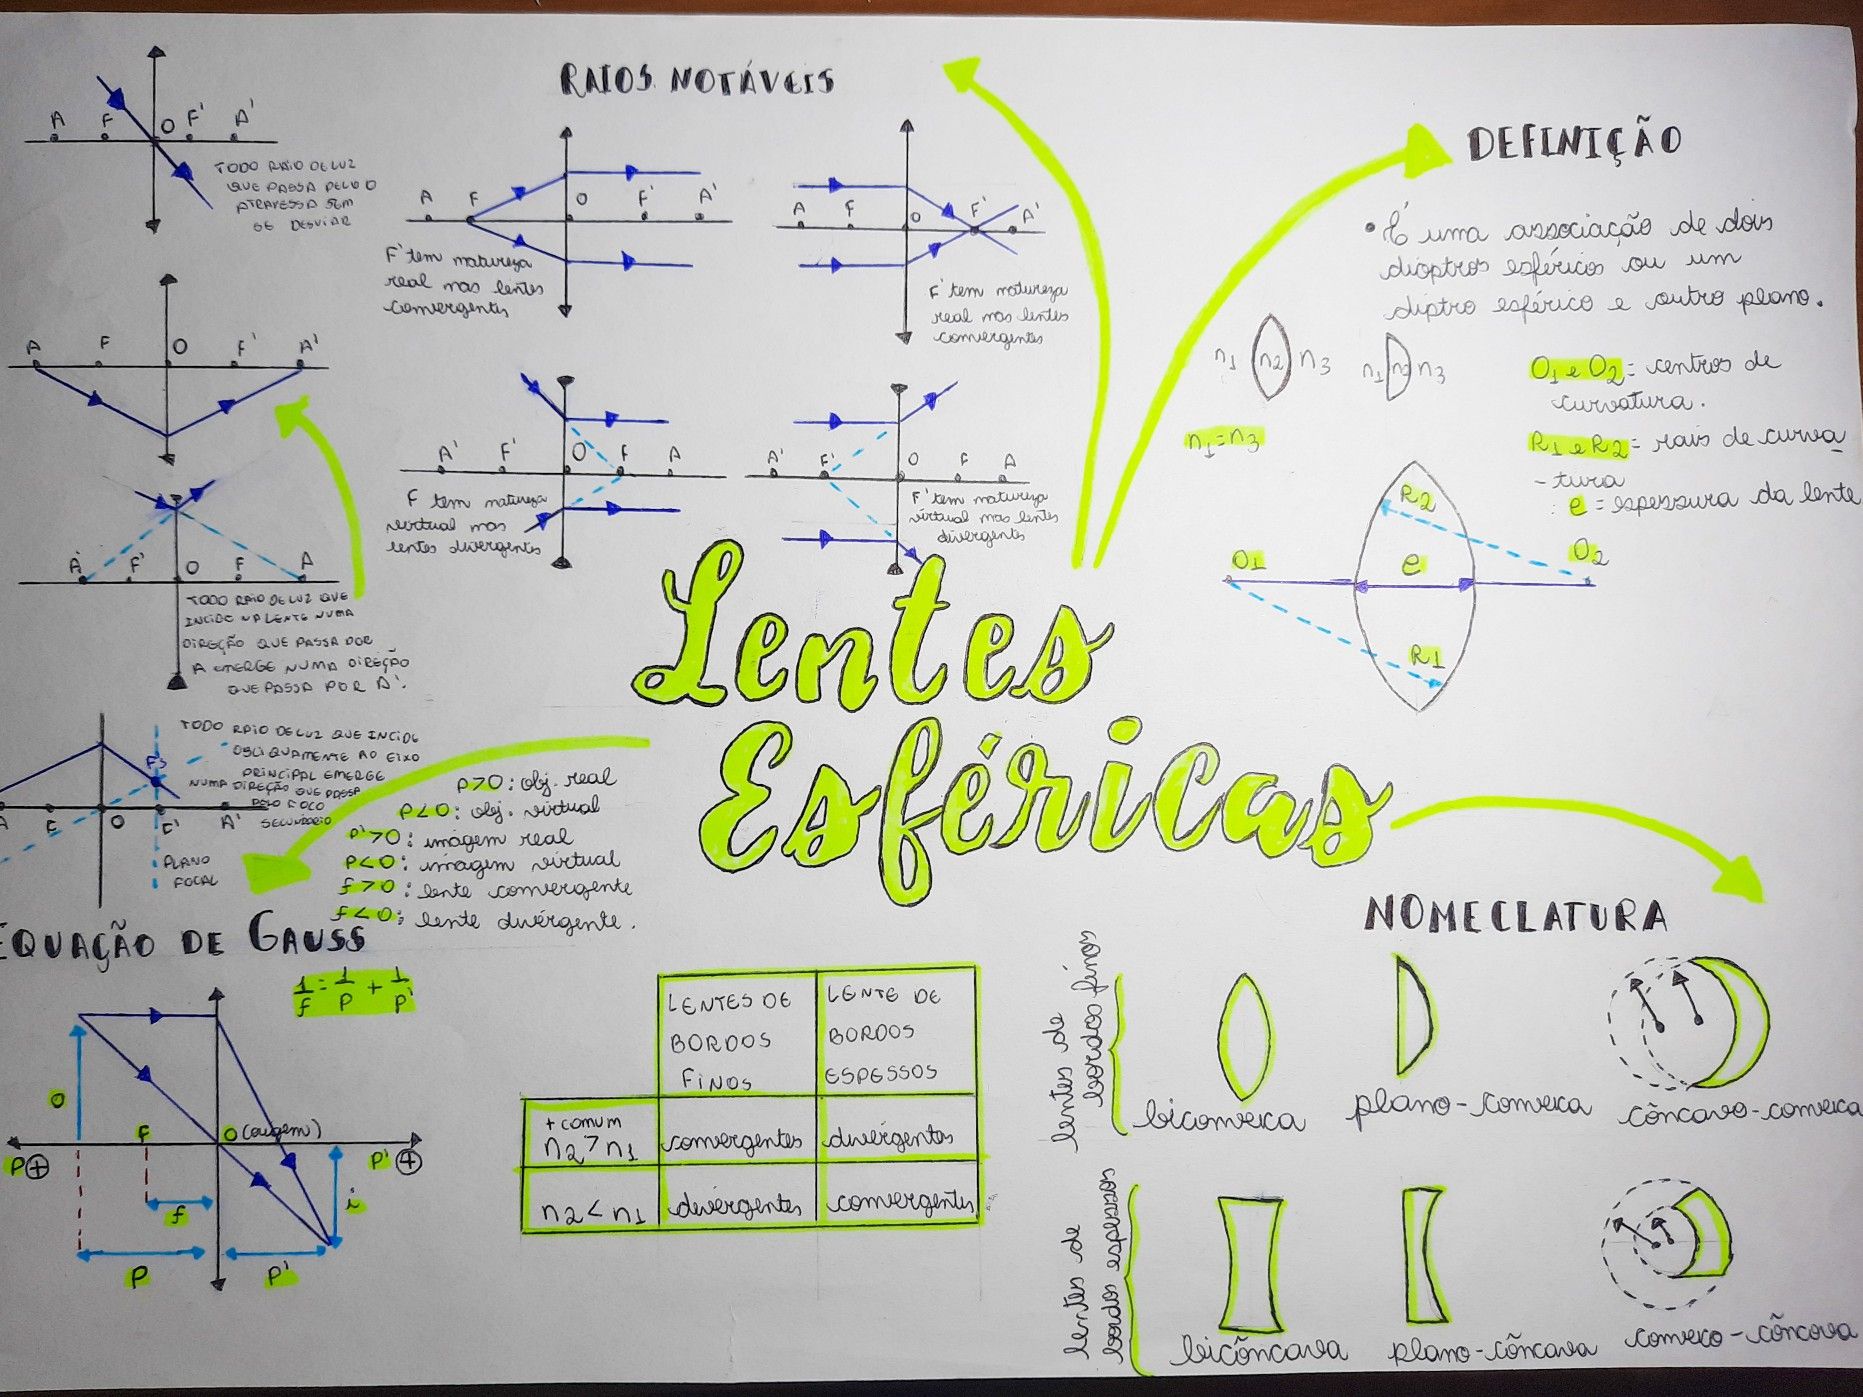 RAIOS NOTÁVEIS
A F O F' A'
TODO RAIO DE LUZ
QUE PASSA PELO O
ATRAVESSA SEM
SE DESVIAR
A F O F' A'
F' tem natureza
real nas lentes
convergentes
A F O F' A'
F' tem natureza
real nas lentes
convergentes
A F O F' A'
A' F' O F A
F tem natureza
virtual nas
lentes divergentes
A' F' O F A
F' tem natureza
virtual nas lentes
divergentes
A' F' O F A
TODO RAIO DE LUZ QUE
INCIDE NA LENTE NUMA
DIREÇÃO QUE PASSA POR
A EMERGE NUMA DIREÇÃO
QUE PASSA POR A'.
TODO RAIO DE LUZ QUE INCIDE
OBLIQUAMENTE AO EIXO
PRINCIPAL EMERGE
NUMA DIREÇÃO QUE PASSA
PELO FOCO
SECUNDÁRIO
A F O F' A'
PLANO
FOCAL
DEFINIÇÃO
• É uma associação de dois
dioptros esféricos ou um
diptro esférico e outro plano.
n1 n2 n3
n1 n2 n3
n1=n3
O1 e O2= centros de
curvatura.
R1 e R2= rais de curva
-tura
e = espessura da lente
R2
O1 e O2
R1
Lentes
Esféricas
p>0: obj. real
p<0: obj. virtual
p'>0: imagem real
p<0: imagem virtual
f>0: lente convergente
f<0: lente divérgente.
EQUAÇÃO DE GAUSS
1/f = 1/p + 1/p'
o
F O (origem)
P⊕ P'⊕
f i
P P'
LENTES DE BORDOS FINOS
LENTE DE BORDOS ESPESSOS
+ comum
n2>n1 convergentes divergentes
n2<n1 divergentes convergentes
NOMECLATURA
lentes de
bordos finos
biconvexa plano-convexa côncavo-convexa
lentes de
bordos espessos
bicôncava plano-côncava convexo-côncova